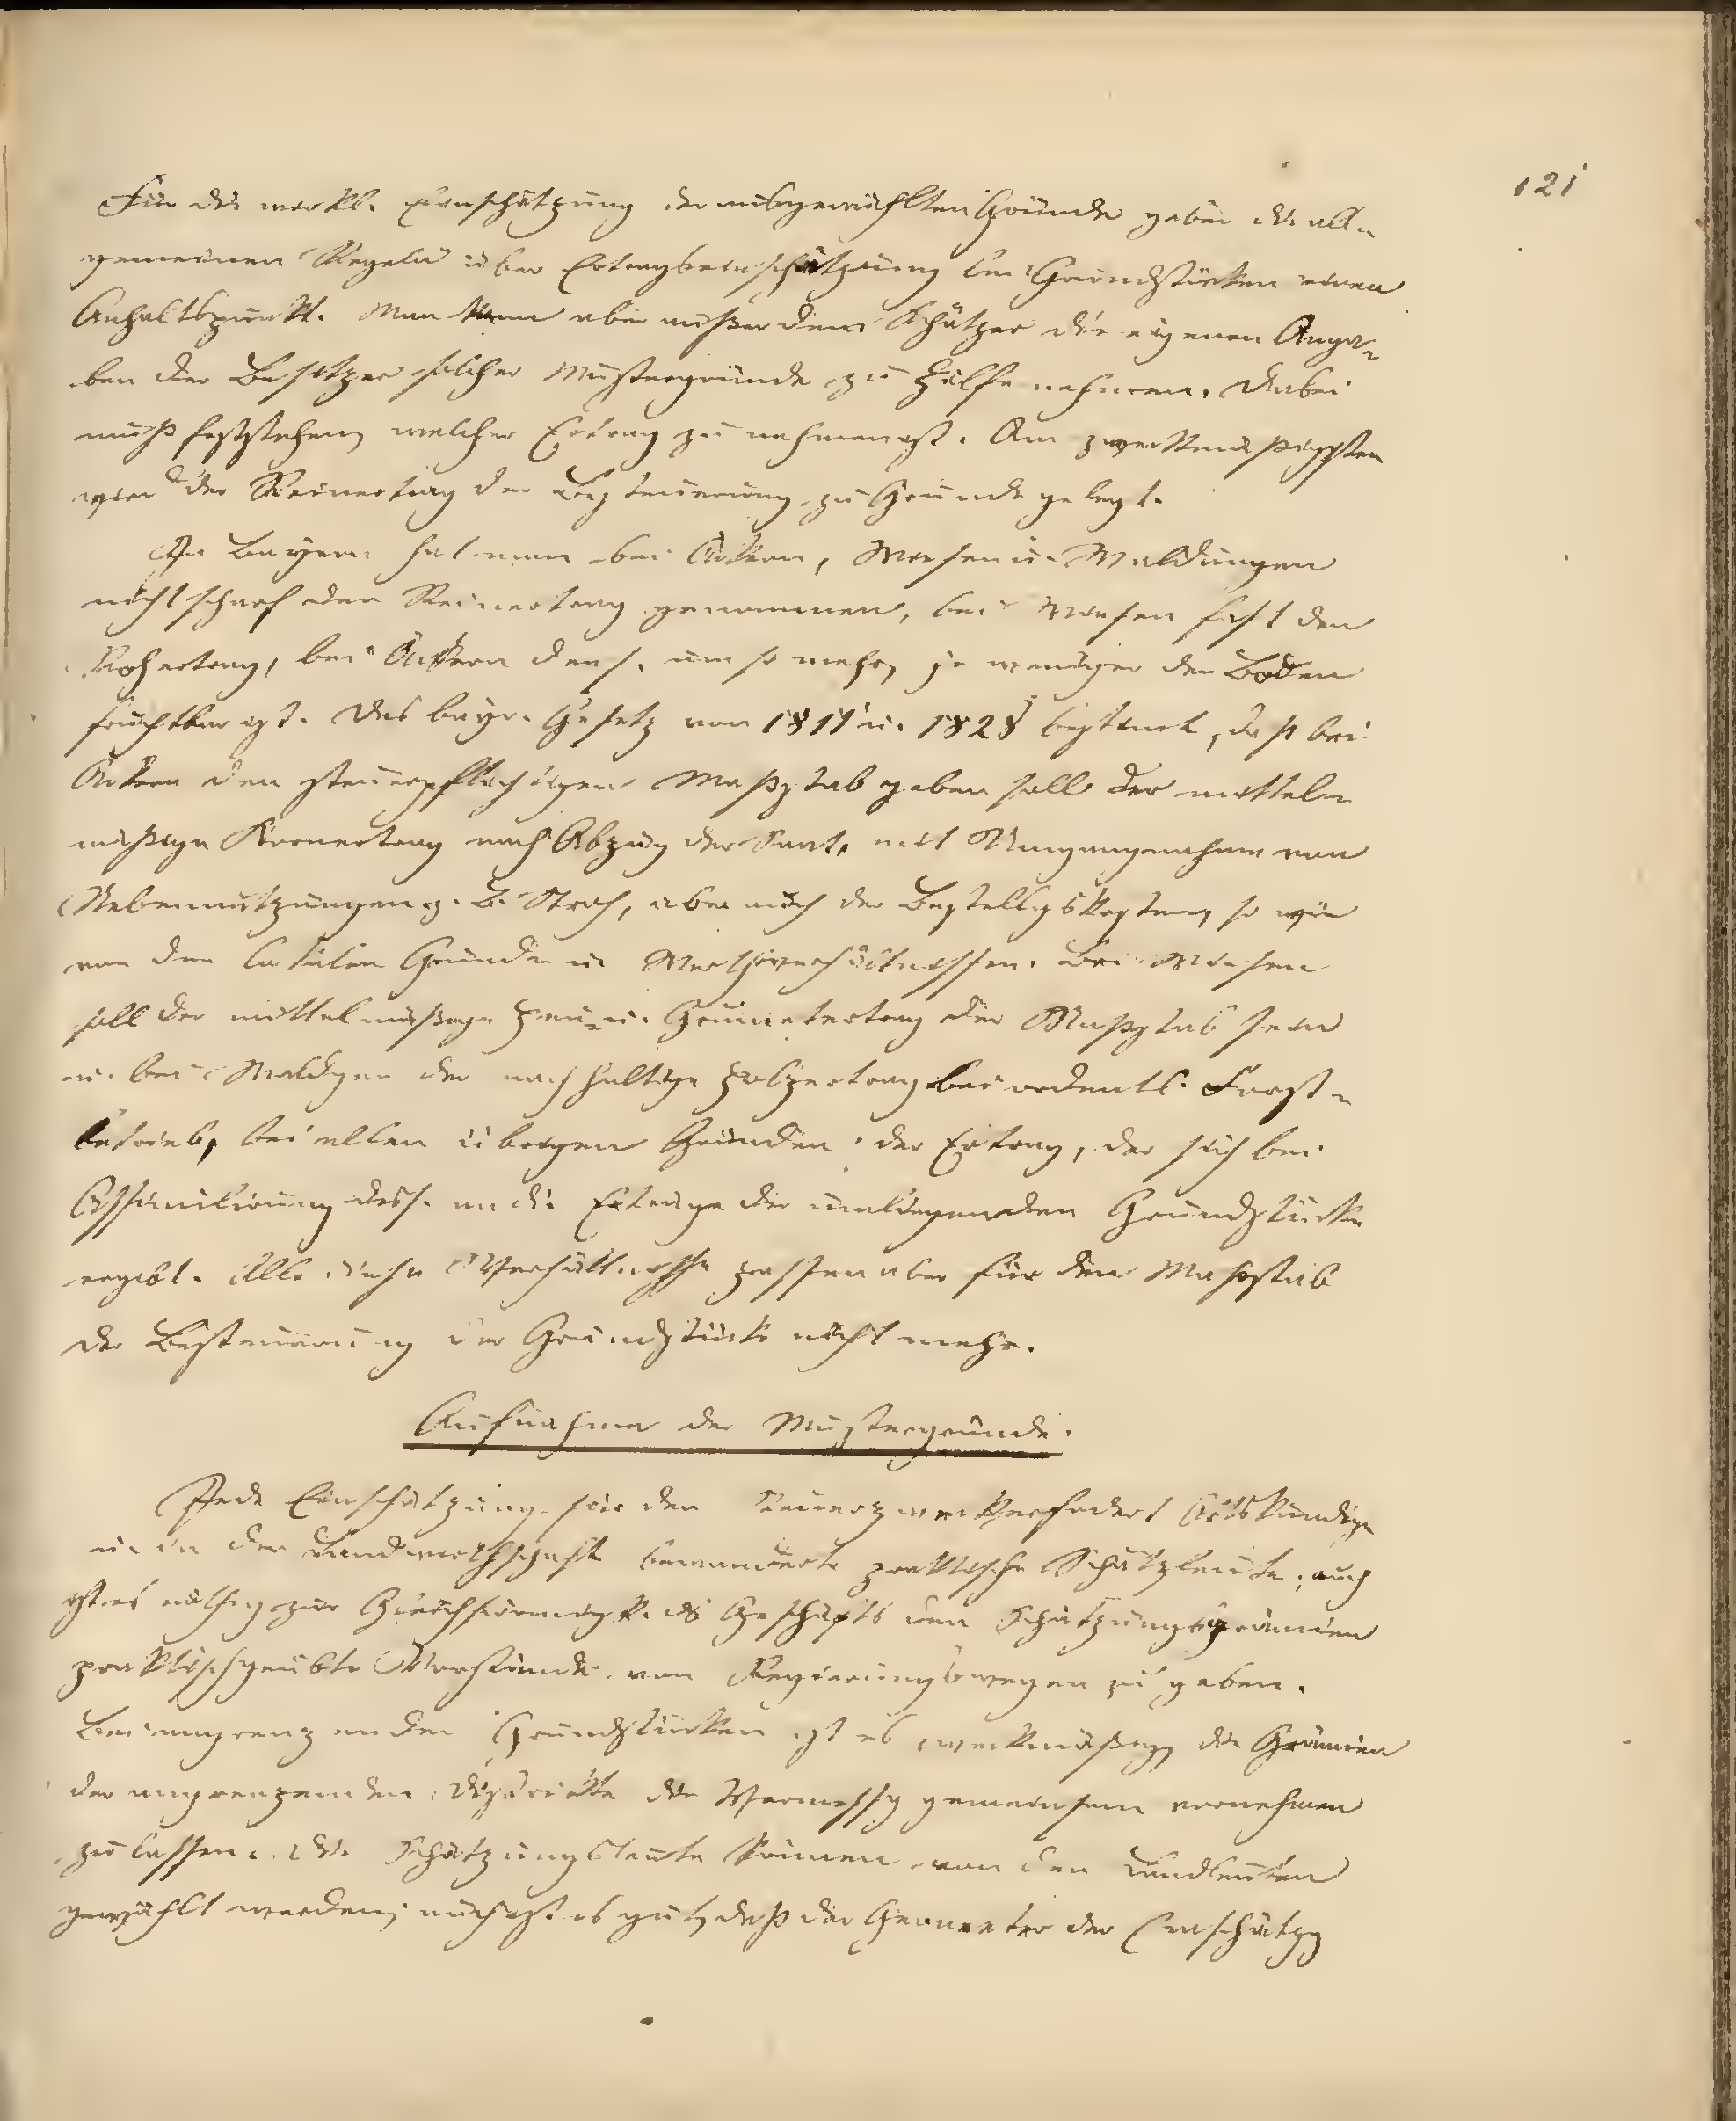 121
Für die wirkl. Einschätzung der ausgewählten Gründe geben die all-
gemeinen Regeln über Ertragseinschätzung bei Grundstücken einen
Anhaltspunkt. Man kann aber außer dem Schätzer die eigenen Anga-
ben der Besitzer solcher Mustergründe zu Hülfe nehmen. Dabei
muß feststehen, welcher Ertrag zu nehmen ist. Am zweckmäßigsten
wird der Reinertrag der Besteuerung zu Grunde gelegt.
In Bayern hat man bei Äckern, Wiesen u. Waldungen
nicht scharf den Reinertrag genommen, bei Wiesen fast den
Rohertrag, bei Äckern dens. um so mehr, je weniger der Boden
fruchtbar ist. Das bayr. Gesetz von 1811 u. 1828 bestimt, daß bei
Äckern den steuerpflichtigen Maßstab geben soll der mittel-
mäßige Körnertrag nach Abzug der Saat, mit Umgangnahme von
Nebennutzungen z. B. Stroh, aber auch der Bestellgskosten, so wie
von den Gründen u. Werthverhältnissen. Bei Wiesen
soll der mittelmäßige Heu- u. Grummetertrag der Maßstab sein
u. bei Waldgen der nachhaltige Holzertrag bei ordentl. Forst-
betrieb, bei allen übrigen Gründen der Ertrag, der sich bei
Assimilirung dess. an die Erträge der umliegenden Grundstücke
ergibt. Alle diese Verhältnisse passen aber für den Maßstab
der Besteuerung der Grundstücke nicht mehr.
Aufnahme der Mustergründe.
Jede Einschätzung für den Steuerzweck erfodert Ortskundige
u. in der Landwirthschaft bewanderte praktische Schätzleute; auch
ist es nöthig zur Gleichförmigk. des Geschäfts den Schätzungsgremien
praktischgeübte Vorstände von Regierungswegen zu geben.
Bei angrenzenden Grundstücken ist es zweckmäßig, die Gremien
der angrenzenden Distrikte die Vermessg gemeinsam vornehmen
zu lassen. Die Schätzungsleute können von den Landleuten
gewählt werden; auch ist es gut, daß der Geometer der Einschätzg